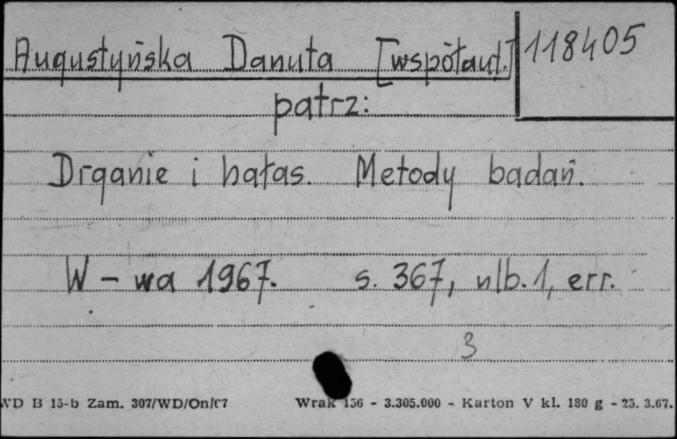 Augustyńska Danuta [współaut.] 118405
patrz:
Drganie i hałas. Metody badań.
W-wa 1967. s. 367, nlb. 1, err.
3
WD B 15-b Zam. 307/WD/On/67 Wrak 156 - 3.305.000 - Karton V kl. 180 g - 25. 3.67.